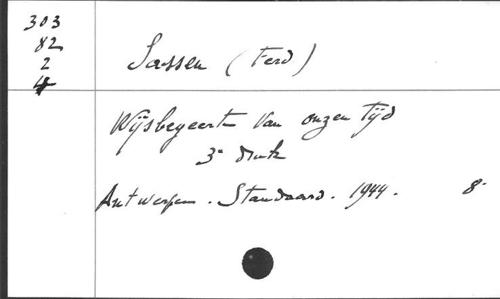 303
82
2
4
Sassen (Ferd)
Wijsbegeerte van onzen tijd
3e druk
Antwerpen. Standaard. 1944. 8°